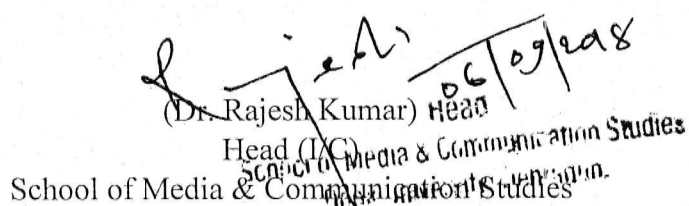 06/09/2018
(Dr. Rajesh Kumar) Head
Head (I/C)
School of Media & Communication Studies
School of Media & Communication Studies